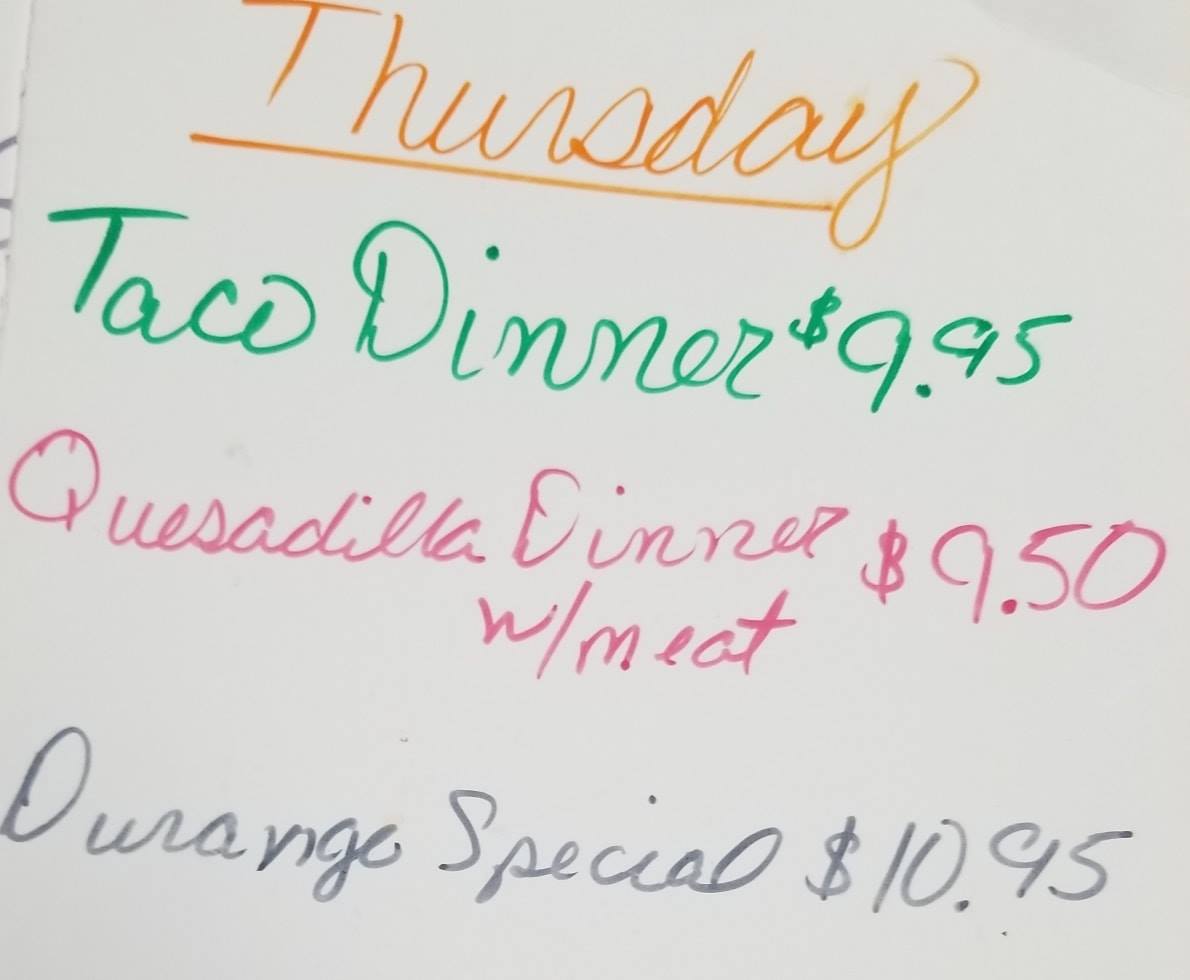 Thursday
Taco Dinner $9.95
Quesadilla Dinner $9.50
w/meat
Durango Special $10.95